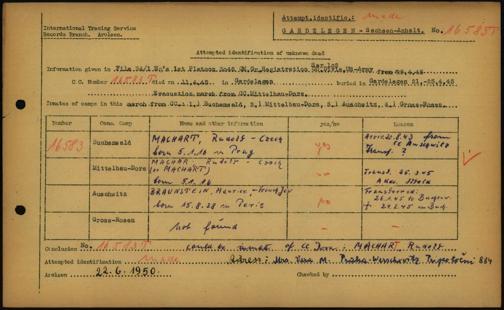 International Tracing Service
Records Branch, Arolsen.
Attempt.identific.: made
GARDELEGEN - Sachsen-Anhalt.
No. 16583T
Attempted identification of unknown dead
Information given in File 54/1 No's 1st Platoon 3046 QM.Gr.Registration US-Army from
C.C. Number 16583T died on 11.4.45 in Gardelegen buried in Gardelegen 21.-25.4.45
Evacuation march from CC.Mittelbau-Dora.
Inmates of camps in march from CC. 1.) Buchenwald, 2.) Mittelbau-Dora, 3.) Auschwitz, 4.) Gross-Rosen.
Number Conc. Camp Name and other information yes/no Reason
16583
Buchenwald MACHART, Rudolf - Czech born 5.1.16 in Prag yes from CC Auschwitz Transf. ?
Mittelbau-Dora MACHAR Rudolf - Czech (or MACHART) born 5.1.16 no Transf. 25.3.45
Auschwitz BRAUNSTEIN, Maurice born 15.8.28 in Paris no Transferred: 26.1.45 to Buchenw.
Gross-Rosen not found - -
Conclusion No. 16583T could be inmate of CC Dora: MACHART Rudolf
Attempted identification made Adress: Mrs. Vera M. Praha-Werschovitz 884
Arolsen 22.6.1950. Checked by